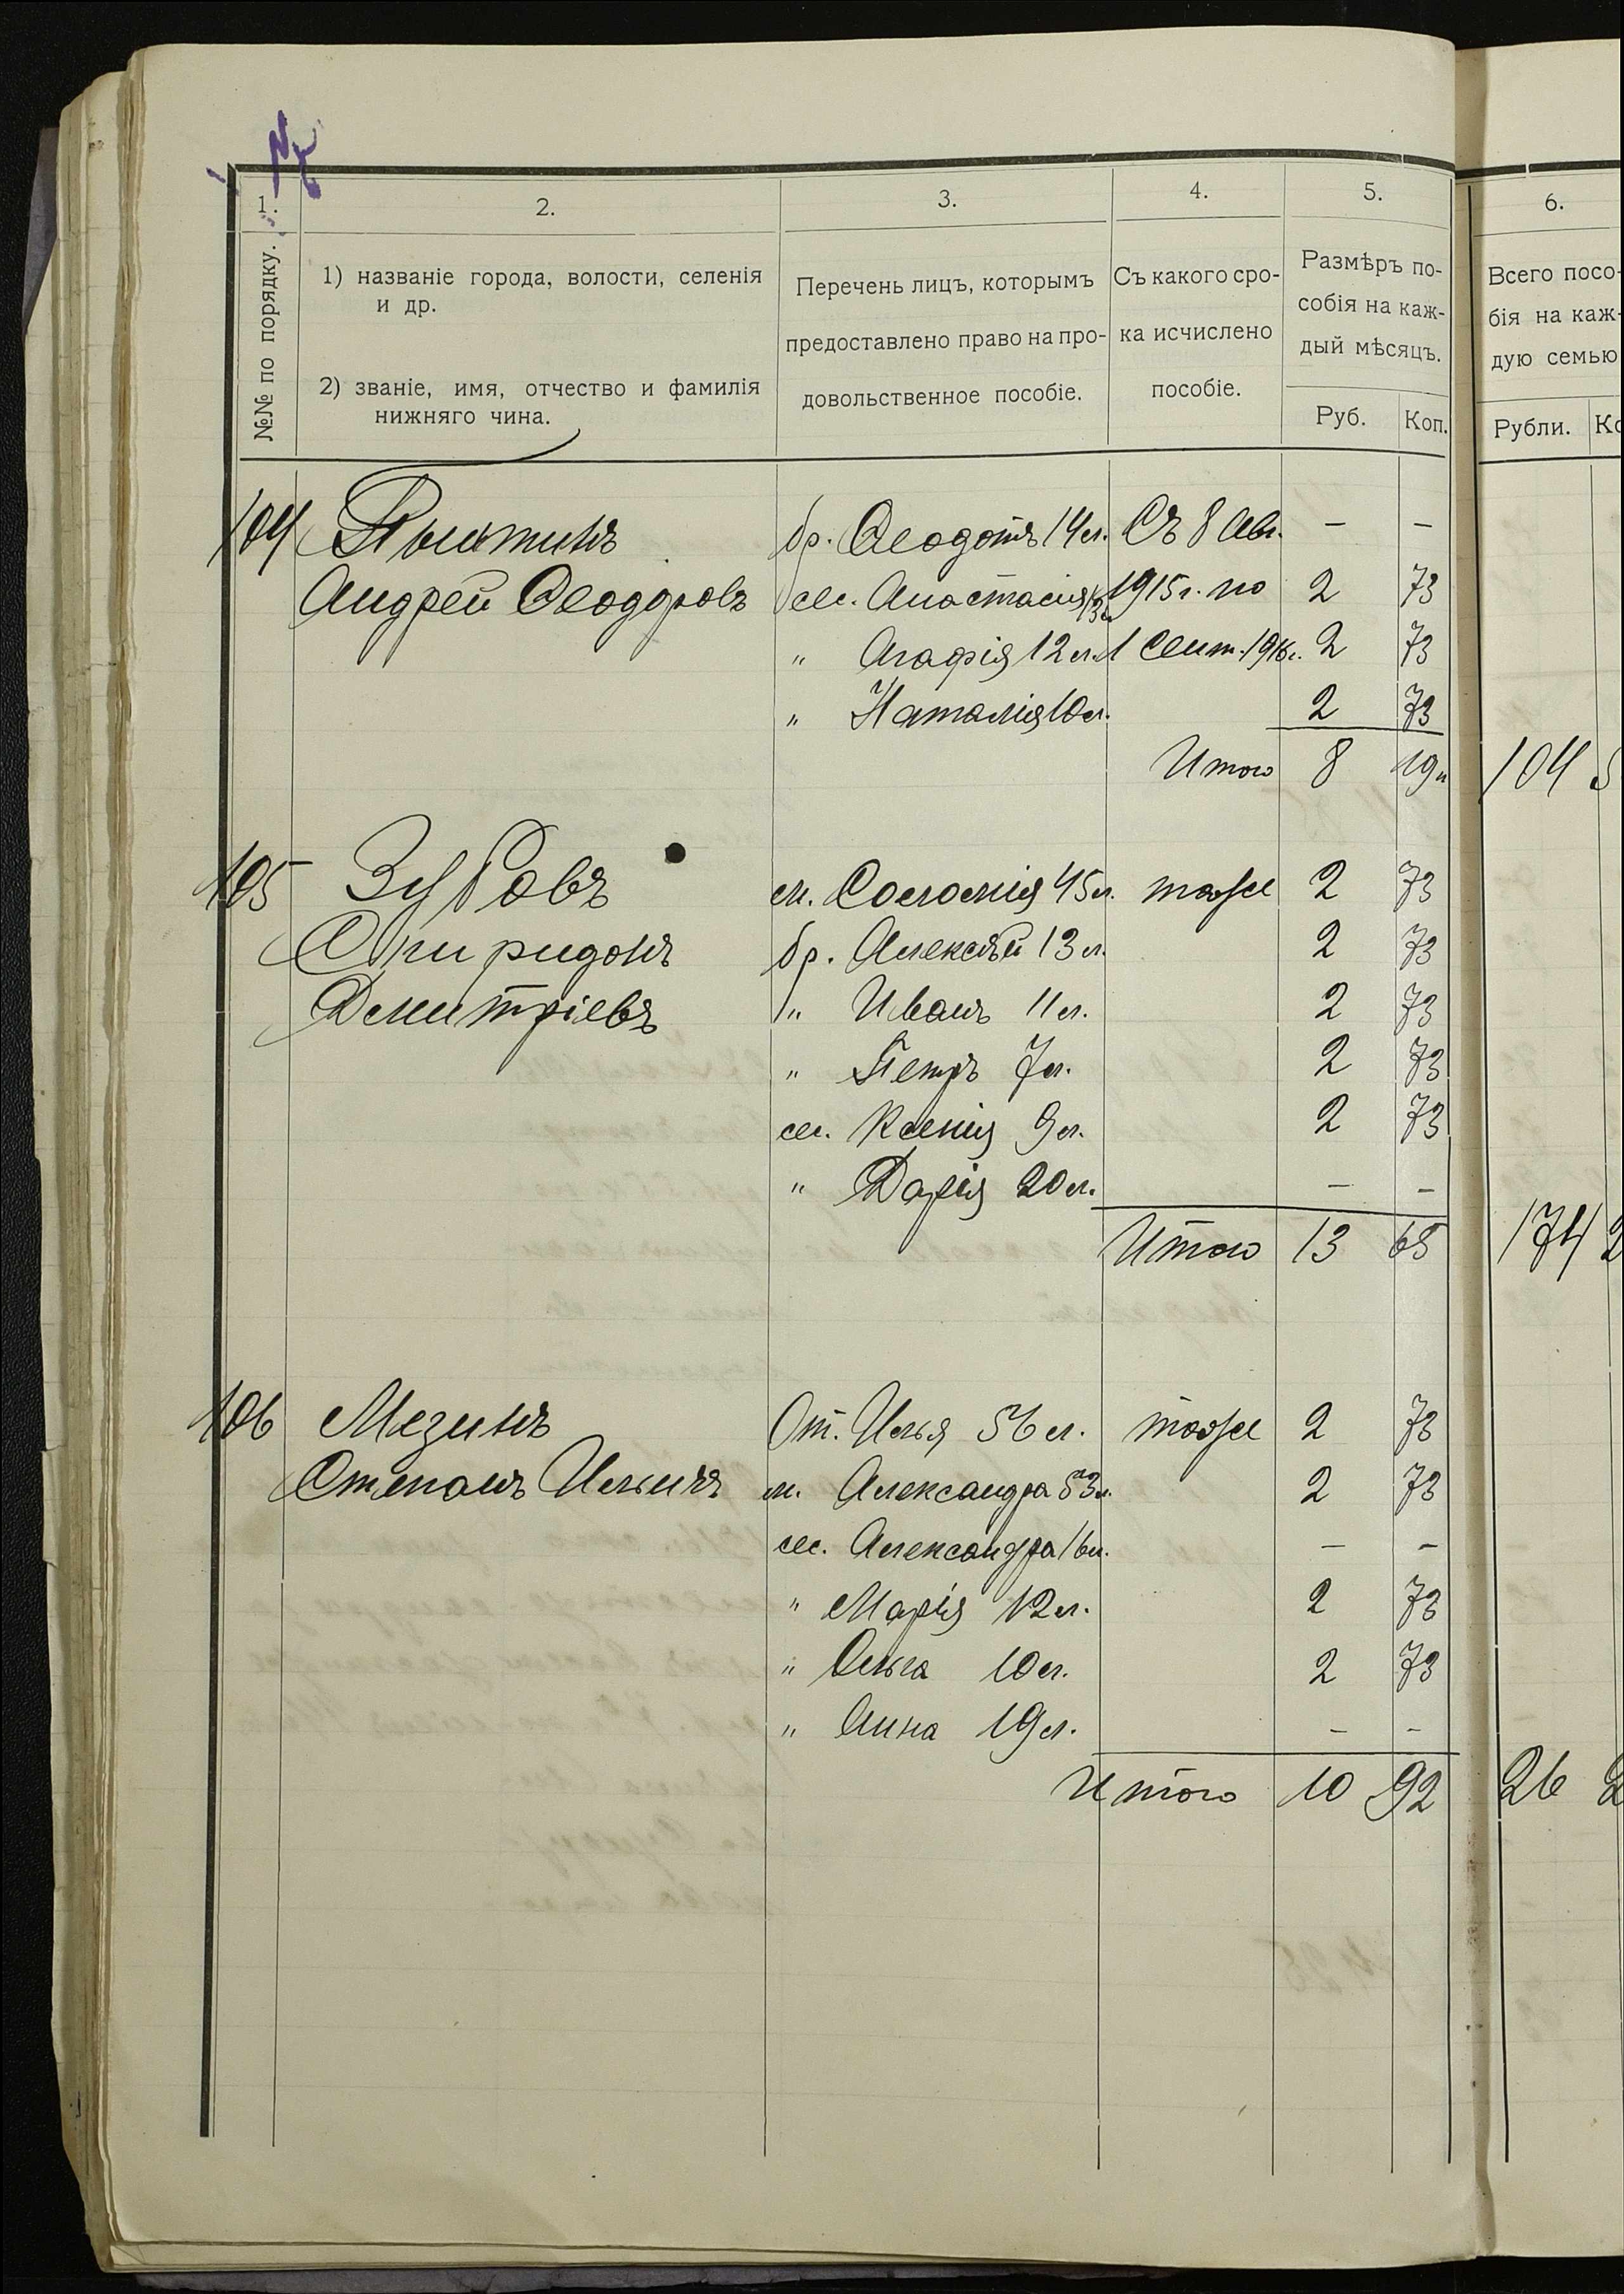 1. 2. 3. 4. 5. 6.
№№ по порядку.
1) названіе города, волости, селенія
и др.
2) званіе, имя, отчество и фамилія
нижняго чина.
Перечень лицъ, которымъ
предоставлено право на про-
довольственное пособіе.
Съ какого сро-
ка исчислено
пособіе.
Размѣръ по-
собія на каж-
дый мѣсяцъ.
Руб. Коп.
Всего посо-
бія на каж-
дую семью
Рубли. Ко
104 бр. Ѳеодотъ 14 л. Съ 8 Авг. – –
Андрей Ѳеодоровъ сес. Анастасія 13 л. 1915 г. по 2 73
" Агафія 12 л. 1 Сент. 1916 г. 2 73
" Наталія 10 л. 2 73
Итого 8 19 104
105 Зубовъ м. Соломія 45 л. тоже 2 73
Спиридонъ бр. Алексѣй 13 л. 2 73
Дмитріевъ " Иванъ 11 л. 2 73
" Петръ 7 л. 2 73
сес. Ксенія 9 л. 2 73
" Дарія 20 л. – –
Итого 13 65 174 2
106 Мезинъ От. Илья 56 л. тоже 2 73
Степанъ Ильичъ м. Александра 53 л. 2 73
сес. Александра 16 л. – –
" Марія 12 л. 2 73
" Ольга 10 л. 2 73
" Анна 19 л. – –
Итого 10 92 26 2